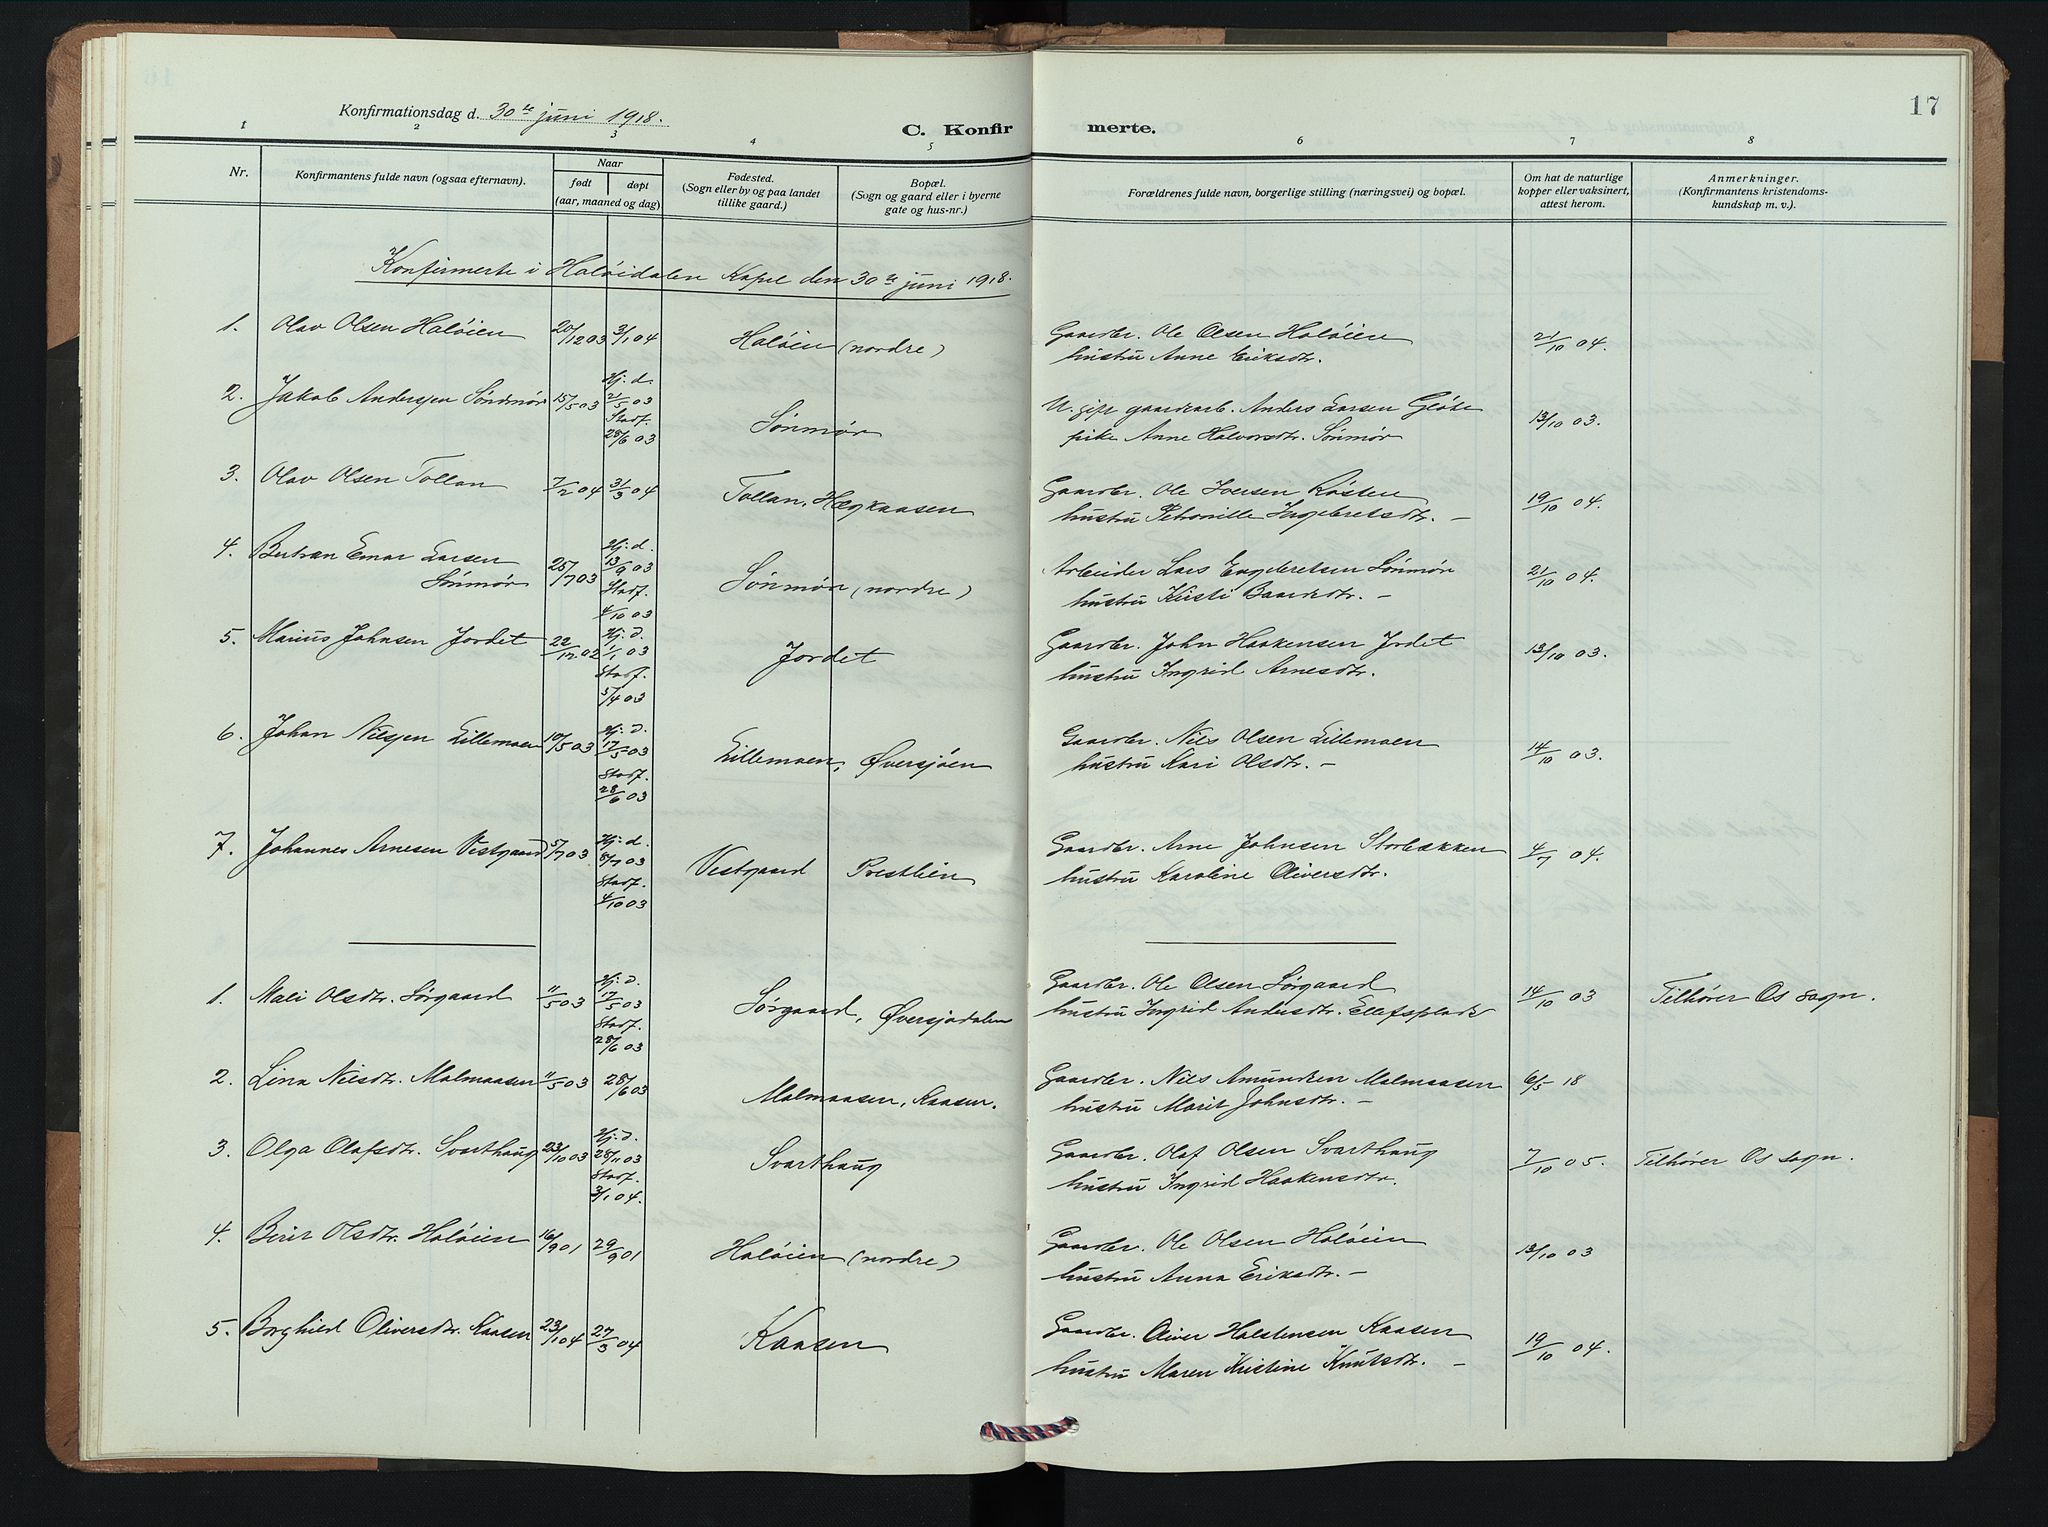 17
Konfirmationsdag d. 30te juni 1918.
C. Konfir merte.
1 2 3 4 5 6 7 8
Nr.
Konfirmantens fulde navn (ogsaa efternavn).
Naar
født døpt
(aar, maaned og dag)
Fødested.
(Sogn eller by og paa landet
tillike gaard.)
Bopæl.
(Sogn og gaard eller i byerne
gate og hus-nr.)
Forældrenes fulde navn, borgerlige stilling (næringsvei) og bopæl.
Om hat de naturlige
kopper eller vaksinert,
attest herom.
Anmerkninger.
(Konfirmantens kristendoms-
kundskap m. v.).
Konfirmerte i Holøidalen Kapel den 30te juni 1918.
1. Olav Olsen Holøien 20/12 03 3/1 04 Holøien (nordre) Gaardbr. Ole Olsen Holøien 21/10 04.
hustru Anne Eriksdtr.
2. Jakob Andersen Söndmör 15/5 03 Hj. d. 2/5 03 Stadf. 28/6 03 Sönmör U. gift gaardarb. Anders Larsen Gløte 13/10 03.
pike Anne Halvorsdtr. Sönmör
3. Olav Olsen Tollan 7/2 04 31/3 04 Tollan, Hægkaasen Gaardbr. Ole Iversen Røsten 19/10 04.
hustru Petronille Ingebretsdtr. –
4. Bertran Emar Larsen
Sönmör 25/7 03 Hj. d. 13/9 03 Stadf. 4/10 03 Sönmör (nordre) Arbeider Lars Engebretsen Sönmör 21/10 04.
hustru Kirsti Baardsdtr. –
5. Marius Johnsen Jordet 22/12 02 Hj. d. 1/1 03 Stadf. 5/4 03 Jordet Gaardbr. John Haakensen Jordet 13/10 03.
hustru Ingrid Arnesdtr.
6. Johan Nilsen Lillemoen 10/5 03 Hj. d. 17/5 03 Stadf. 28/6 03 Lillemoen, Øversjøen Gaardbr. Nils Olsen Lillemoen 14/10 03.
hustru Kari Olsdtr. –
7. Johannes Arnesen Vestgaard 5/7 03 Hj. d. 8/7 03 Stadf. 4/10 03 Vestgaard Prestlien Gaardbr. Arne Johnsen Storbækken 4/7 04.
hustru Karoline Oliversdtr.
1. Mali Olsdtr. Sørgaard 11/5 03 Hj. d. 17/5 03 Stadf. 28/6 03 Sørgaard, Øversjødalen Gaardbr. Ole Olsen Sørgaard 14/10 03 Tilhører Os sogn.
hustru Ingrid Andersdtr. Ellefsplads
2. Lina Nilsdtr. Malmaasen 11/5 03 28/6 03 Malmaasen, Kaasen. Gaardbr. Nils Amundsen Malmaasen 6/5 18
hustru Marit Johnsdtr. –
3. Olga Olafsdtr. Svarthaug 23/10 03 Hj. d. 28/11 03 Stadf. 3/1 04. Svarthaug Gaardbr. Olaf Olsen Svarthaug 7/10 05. Tilhører Os sogn.
hustru Ingrid Haakensdtr.
4. Berit Olsdtr. Holøien 16/9 01 29/9 01 Holøien (nordre) Gaardbr. Ole Olsen Holøien 13/10 03
hustru Anna Eriksdtr. –
5. Borghild Oliversdtr. Kaasen 23/1 04 27/3 04 Kaasen Gaardbr. Oliver Halstensen Kaasen 19/10 04.
hustru Maren Kristine Knutsdtr. –